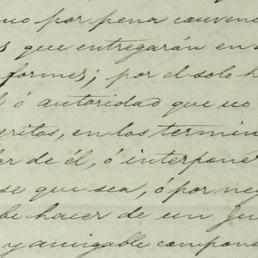 mo por pena conveno
s que entregarán en
formes; por el solo h
l ó autoridad que no
eritos, en los termin
der de él, ó interponé
se que sea, ó por neg
be hacer de un Ju
y amigable compone